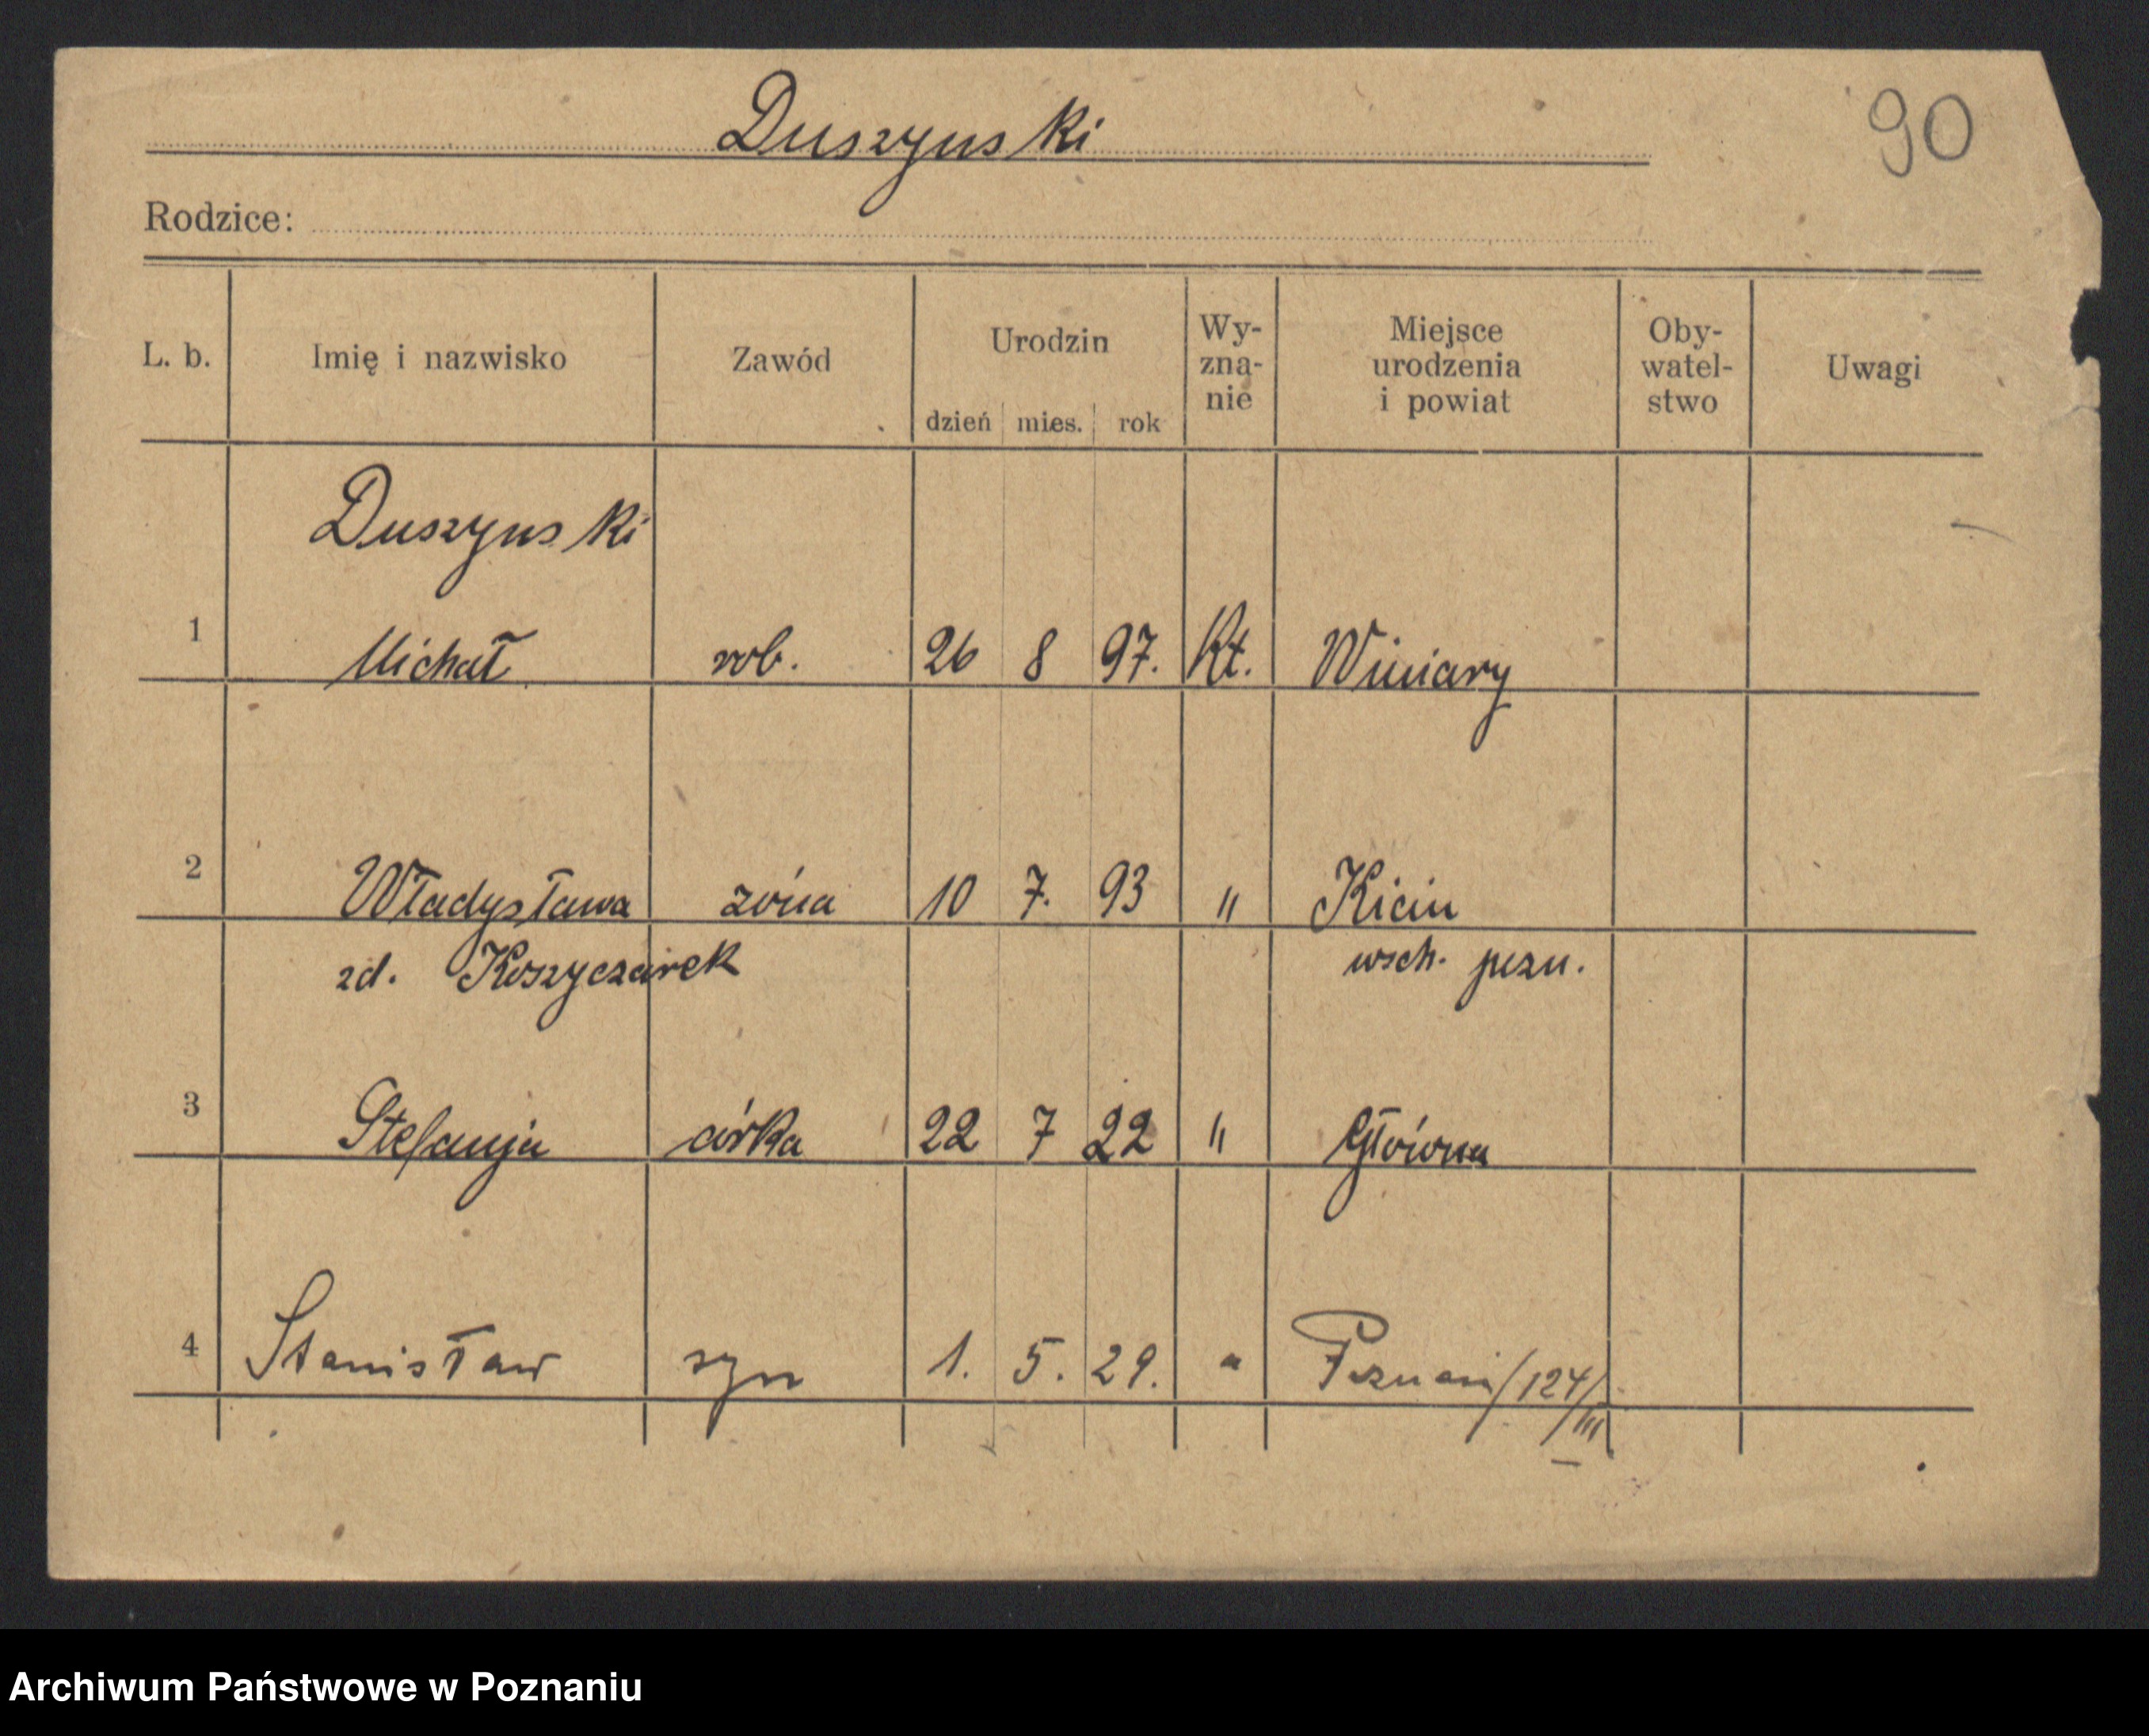 Duszynski
90
Rodzice:
L. b. Imię i nazwisko Zawód Urodzin dzień mies. rok Wy-zna-nie Miejsce urodzenia i powiat Oby-watel-stwo Uwagi
Duszynski
1 Michał rob. 26 8 97. Kt. Winiary
2 Władysława żona 10 7. 93 " Kicin
zd. Koszyczarek wsch. pozn.
3 Stefanja córka 22 7 22 " Główna
4 Stanisław syn 1. 5. 29. " Poznań /124/III
Archiwum Państwowe w Poznaniu